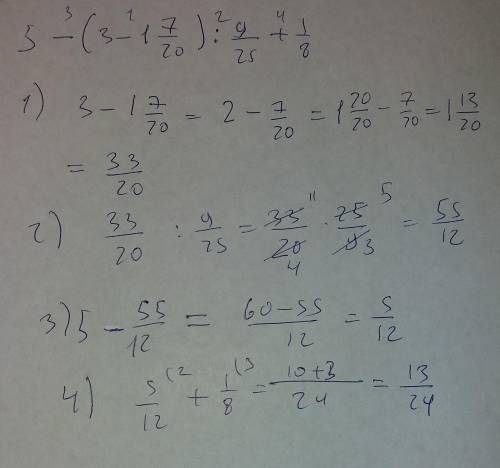 5 - (3 - 1 7/20) : 9/25 + 1/8
3 1 2 4
1) 3 - 1 7/20 = 2 - 7/20 = 1 20/20 - 7/20 = 1 13/20
= 33/20
2) 33/20 : 9/25 = 33/20 · 25/9 = 55/12
11 5 4 3
3) 5 - 55/12 = 60-55/12 = 5/12
4) 5/12 (2 + 1/8 (3 = 10+3/24 = 13/24